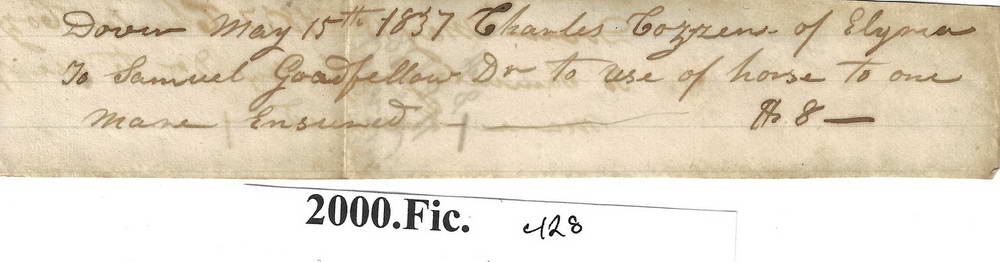 Dover May 15th 1837 Charles Cozzens of Elyria
To Samuel Goodfellow Dr to use of horse to one
mare Ensured $8 —
2000.Fic. 428